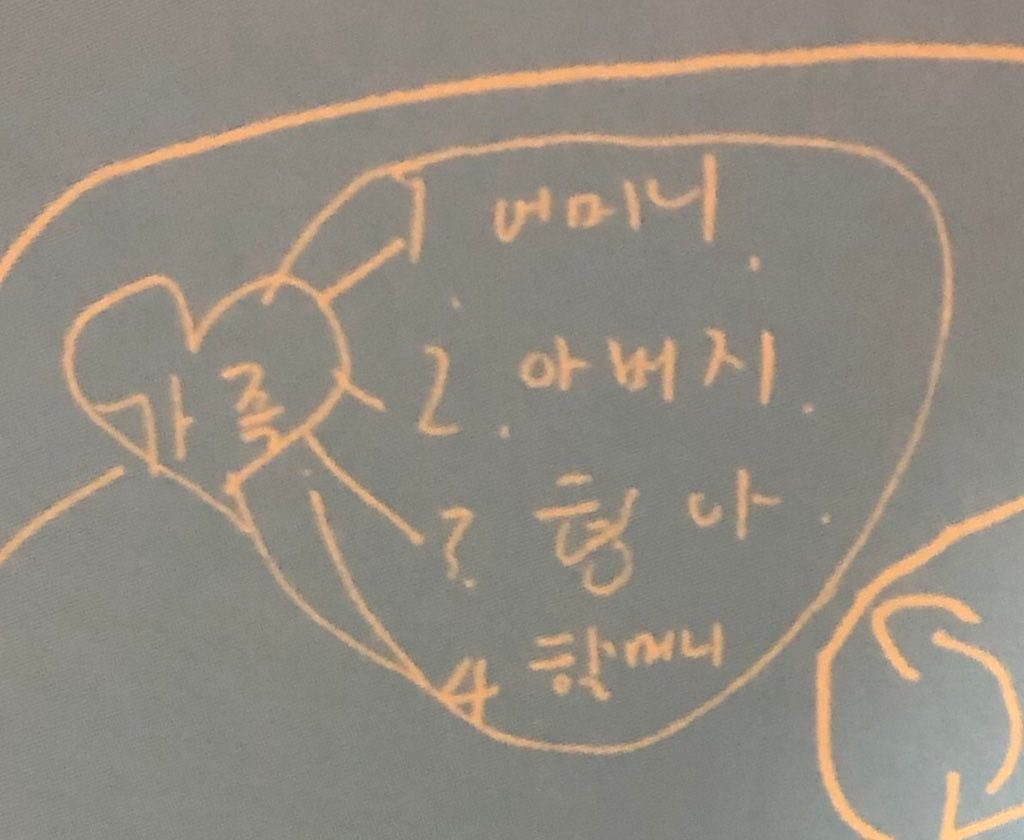 가족
1 어머니.
2. 아버지.
3. 형 나.
4 할머니